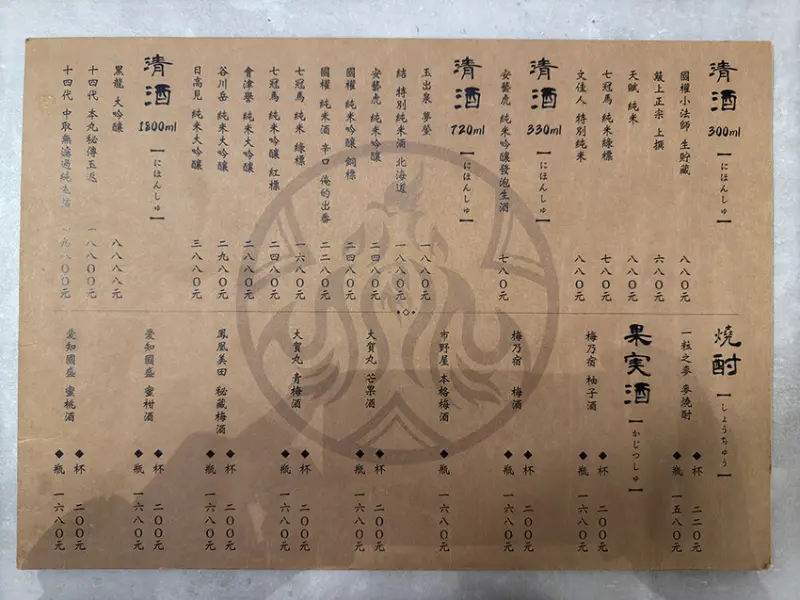 清酒 300ml 【にほんしゅ】
國權小法師 生貯藏 八八〇元
最上正宗 上撰 六八〇元
天賦 純米 八八〇元
七冠馬 純米綠標 七八〇元
文佳人 特別純米 八八〇元
清酒 330ml 【にほんしゅ】
安藝虎 純米吟釀發泡生酒 七八〇元
清酒 720ml 【にほんしゅ】
玉出泉 夢螢 一八八〇元
結 特別純米酒 北海道 一八八〇元
安藝虎 純米吟釀 二四八〇元
國權 純米吟釀 銅標 二四八〇元
國權 純米酒 辛口 俺的出番 二二八〇元
七冠馬 純米 綠標 一六八〇元
七冠馬 純米吟釀 紅標 二四八〇元
會津譽 純米大吟釀 二八八〇元
谷川岳 純米大吟釀 二九八〇元
日高見 純米大吟釀 三八八〇元
清酒 1800ml 【にほんしゅ】
黑龍 大吟釀 八八八八元
十四代 本丸秘傳玉返 一八八〇〇元
十四代 中取無濾過純米 八〇〇元
燒酎 【しょうちゅう】
一粒之麥 麥燒酎 ◆杯 二二〇元 ◆瓶 一五八〇元
果実酒 【かじつしゅ】
梅乃宿 柚子酒 ◆杯 二〇〇元 ◆瓶 一六八〇元
梅乃宿 梅酒 ◆杯 二〇〇元 ◆瓶 一六八〇元
市野屋 本格梅酒 ◆瓶 一六八〇元
大賀丸 芒果酒 ◆杯 二〇〇元 ◆瓶 一六八〇元
大賀丸 青梅酒 ◆杯 二〇〇元 ◆瓶 一六八〇元
鳳凰美田 秘藏梅酒 ◆杯 二〇〇元 ◆瓶 一六八〇元
愛知國盛 蜜柑酒 ◆杯 二〇〇元 ◆瓶 一六八〇元
愛知國盛 蜜桃酒 ◆杯 二〇〇元 ◆瓶 一六八〇元